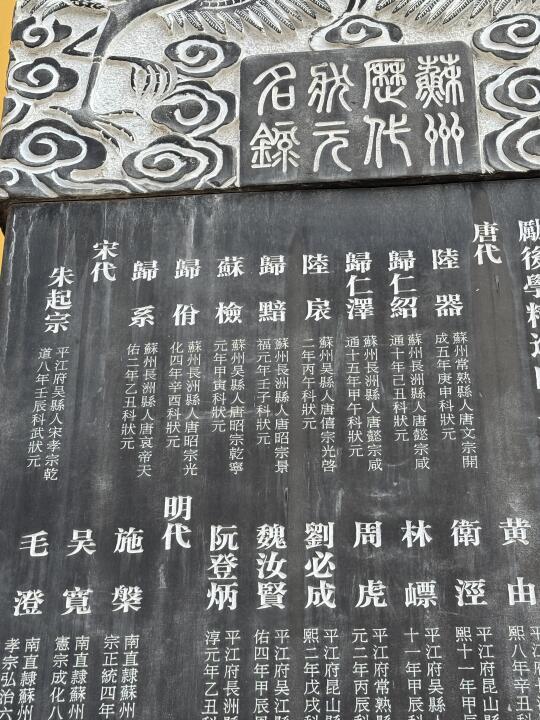 蘇州
歷代
狀元
名錄
勵後學精進
唐代
陸器
蘇州常熟縣人唐文宗開
成五年庚申科狀元
歸仁紹
蘇州長洲縣人唐懿宗咸
通十年己丑科狀元
歸仁澤
蘇州長洲縣人唐懿宗咸
通十五年甲午科狀元
陸扆
蘇州吳縣人唐僖宗光啓
二年丙午科狀元
歸黯
蘇州長洲縣人唐昭宗景
福元年壬子科狀元
蘇檢
蘇州吳縣人唐昭宗乾寧
元年甲寅科狀元
歸佾
蘇州長洲縣人唐昭宗光
化四年辛酉科狀元
歸系
蘇州長洲縣人唐哀帝天
佑二年乙丑科狀元
宋代
朱起宗
平江府吳縣人宋孝宗乾
道八年壬辰科武狀元
黃由
平江府
熙八年辛丑科
衛涇
平江府昆山縣
熙十一年甲辰
林
平江府吳縣
十一年甲辰科
周虎
平江府常熟縣
元二年丙辰
劉必成
平江府昆山縣
熙二年戊戌科
魏汝賢
平江府吳江縣
佑四年甲辰
阮登炳
平江府長洲縣
淳元年乙丑科
明代
施槃
南直隸蘇州
宗正統四年
吳寬
南直隸蘇州
憲宗成化八
毛澄
南直隸蘇州
孝宗弘治六